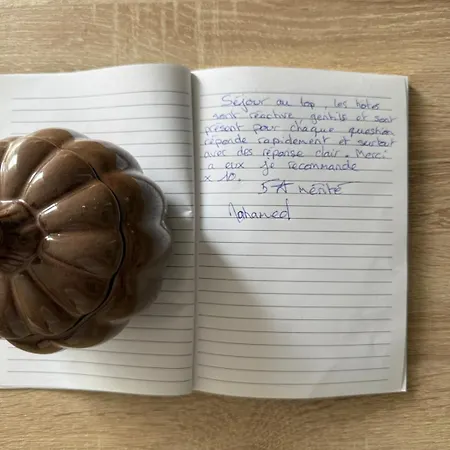 Séjour au top, les hotes
sont réactive, gentils et sont
présent pour chaque question
réponde rapidement et surtout
avec des réponse clair. Merci
a eux je recommande
x 10.
5 ☆ mérité
Mohamed